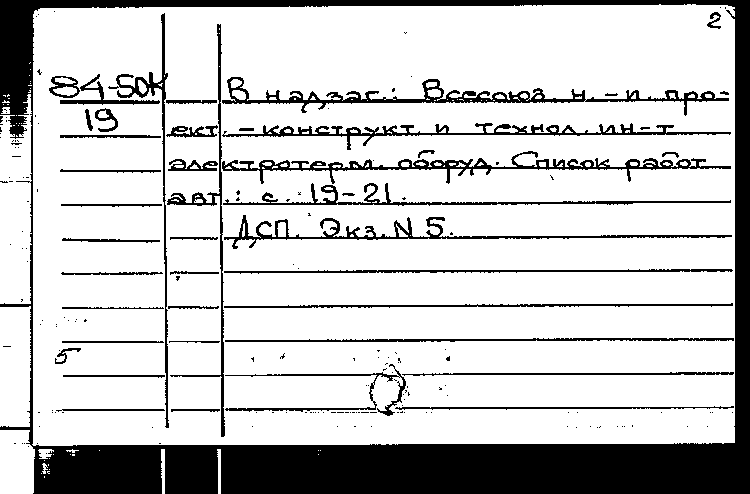 2
84-50К В надзаг.: Всесоюз. н.-и. про-
19 ект.-конструкт. и технол. ин-т
электротерм. оборуд. Список работ
авт.: с. 19-21.
ДСП. Экз. N 5.
5